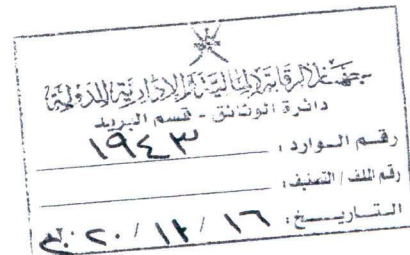 جهاز الرقابة المالية والإدارية للدولة
دائرة الوثائق - قسم البريد
رقم الوارد : ١٩٤٣
رقم الملف / التصنيف :
التاريخ : ١٦ / ١٢ / ٢٠٢٠م